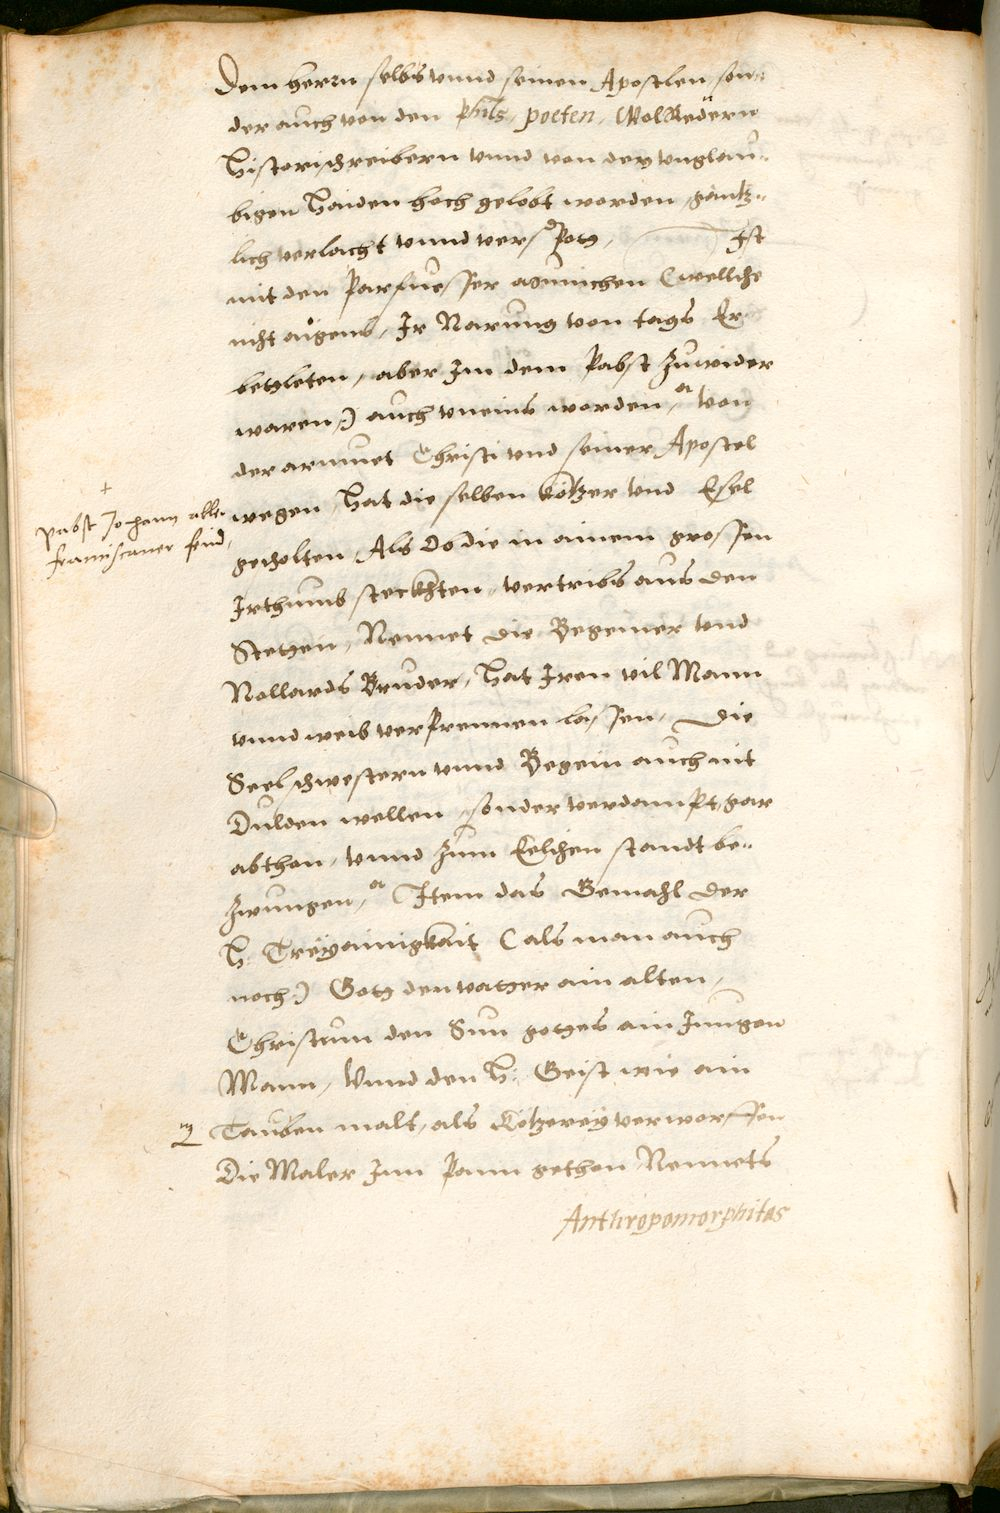 Dem herrn selbs vnnd seinen Apostlen son=
der auch von den Phils, poeten, WolRedern
Historischreibern vnnd von den vnglau=
bigen Haiden hoch gelobt worden, gäntz=
lich verlacht vnnd verspotz, Ist
mit den Parfuesser munichen (wellche
nicht aigens, Ir Narung von tags Er
betleten, aber Im dem Pabst zuwider
waren,) auch vneins worden, von
der armuet Christi vnd seiner Apostel
wegen, Hat die selben kötzer vnd Esel
gescholten, Als Ob die in ainem grossen
Irthumb steckhten, vertribs aus den
Steten, Nennet die Begeiner vnd
Nollards Bruder, Hat Iren vil Mann
vnnd weib verprennen lassen, Die
Seelschwestern vnnd Begein auch nit
Dulden wellen, sonder verdampt, gar
abthon, vnnd zum Eelichen standt be=
zwungen, Item das Gemahl der
H: Treyainigkait (als man auch
noch) Gott den vatter ain alten,
Christum den Sun gottes ain Jungen
Mann, Vnnd den H: Geist wie ain
Tauben malt, als Kötzerey verworffen
Die Maler Inn Pann gethon, Nennets
Anthropomorphitas
+
Pabst Johann alle
franciscaner feind,